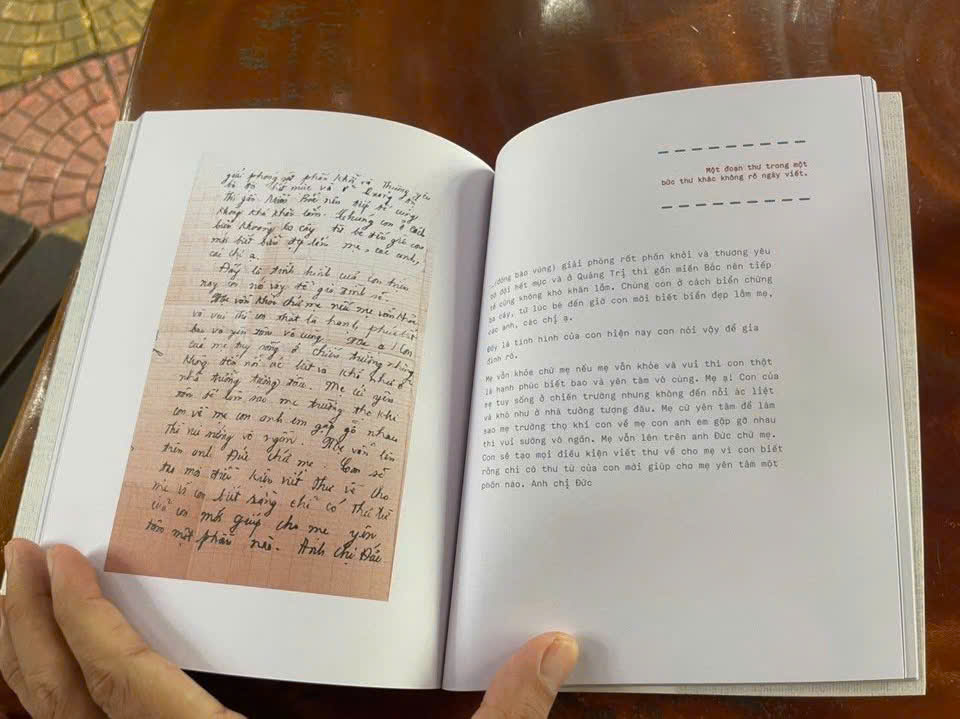 giải phóng rất phấn khởi và thương yêu
bộ đội hết mức và ở Quảng Trị
thì gần Miền Bắc nên tiếp tế cũng
không khó khăn lắm. Chúng con ở cách
biển khoảng ba cây từ bé đến giờ con
mới biết biển đẹp lắm mẹ, các anh,
các chị ạ.
Đấy là tình hình của con hiện
nay con nói vậy để gia đình rõ.
Mẹ vẫn khỏe chứ mẹ nếu mẹ vẫn khỏe
và vui thì con thật là hạnh phúc biết
bao và yên tâm vô cùng. Mẹ ạ! Con
của mẹ tuy sống ở chiến trường nhưng
không đến nỗi ác liệt và khổ như ở
nhà tưởng tượng đâu. Mẹ cứ yên
tâm để làm sao mẹ trường thọ khi
con về mẹ con anh em gặp gỡ nhau
thì vui sướng vô ngần. Mẹ vẫn lên
trên anh Đức chứ mẹ. Con sẽ
tạo mọi điều kiện viết thư về cho
mẹ vì con biết rằng chỉ có thư từ
của con mới giúp cho mẹ yên
tâm một phần nào. Anh chị Đức
Một đoạn thư trong một
bức thư khác không rõ ngày viết.
(đồng bào vùng) giải phóng rất phấn khởi và thương yêu
bộ đội hết mức và ở Quảng Trị thì gần miền Bắc nên tiếp
tế cũng không khó khăn lắm. Chúng con ở cách biển chừng
ba cây, từ lúc bé đến giờ con mới biết biển đẹp lắm mẹ,
các anh, các chị ạ.
Đấy là tình hình của con hiện nay con nói vậy để gia
đình rõ.
Mẹ vẫn khỏe chứ mẹ nếu mẹ vẫn khỏe và vui thì con thật
là hạnh phúc biết bao và yên tâm vô cùng. Mẹ ạ! Con của
mẹ tuy sống ở chiến trường nhưng không đến nỗi ác liệt
và khổ như ở nhà tưởng tượng đâu. Mẹ cứ yên tâm để làm
sao mẹ trường thọ khi con về mẹ con anh em gặp gỡ nhau
thì vui sướng vô ngần. Mẹ vẫn lên trên anh Đức chứ mẹ.
Con sẽ tạo mọi điều kiện viết thư về cho mẹ vì con biết
rằng chỉ có thư từ của con mới giúp cho mẹ yên tâm một
phần nào. Anh chị Đức